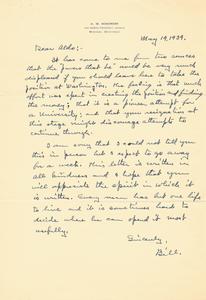 May 19, 1939.
Dear Aldo:-
It has come to me from two sources
that the 'powers that be' would be very much
displeased if you should leave here to take the
position at Washington. The feeling is that much
effort was spent in creating the position and finding
the money; that it is a pioneer attempt for
a University; and that your resignation at
this stage might discourage attempts to
continue through.
I am sorry that I could not tell you
this in person but I expect to go away
for a week. This letter is written in
all kindness and I hope that you
will appreciate the spirit in which it
is written. Every man has but one life
to live and it is sometimes hard to
decide where he can spend it most
usefully.
Sincerely,
Bill.